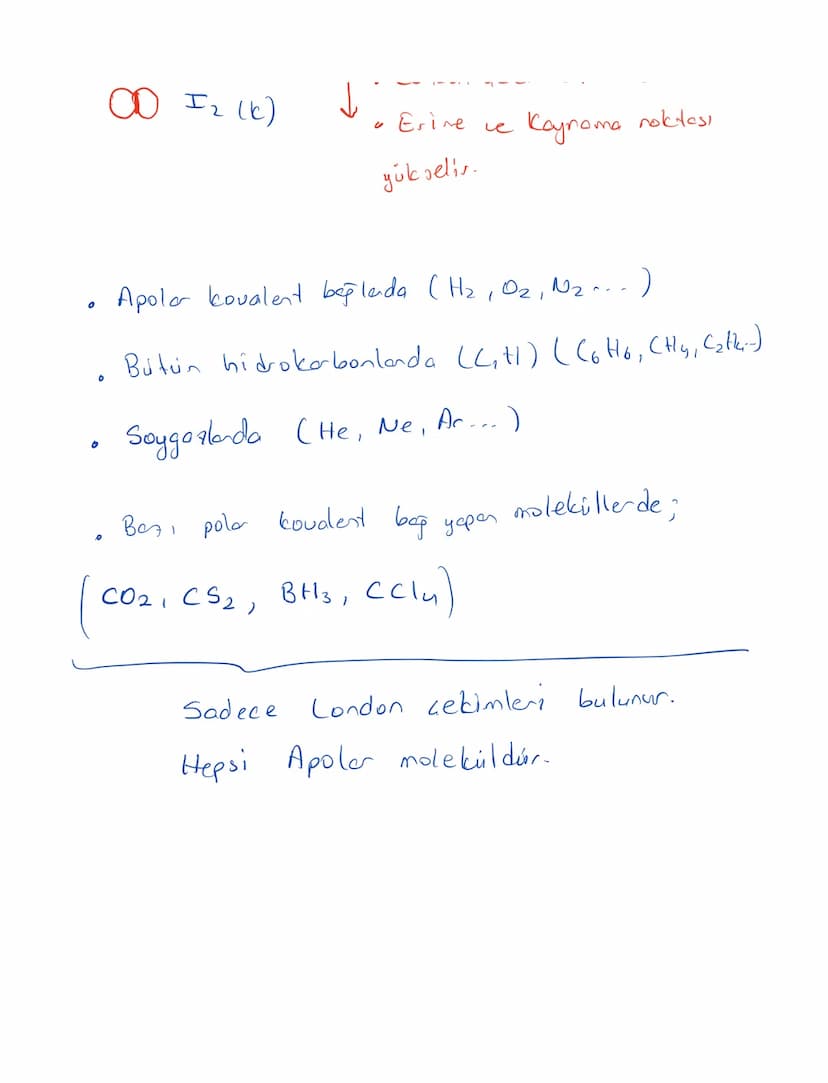 I₂ (k) ↓
• Erime ve Kaynama noktası
yükselir.
• Apolar kovalent bağlarda (H₂, O₂, N₂ ...)
• Bütün hidrokarbonlarda (C, H) (C₆H₆, CH₄, C₂H₄...)
• Soygazlarda (He, Ne, Ar ...)
• Bazı polar kovalent bağ yapan moleküllerde;
(CO₂, CS₂, BH₃, CCl₄)
Sadece London çekimleri bulunur.
Hepsi Apolar moleküldür.